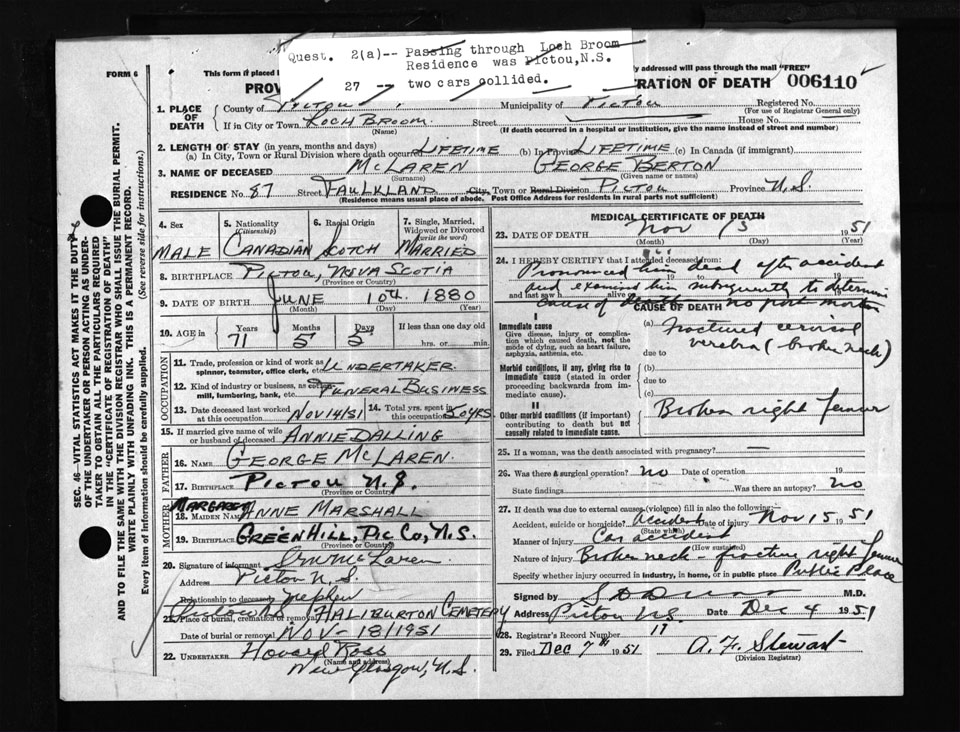 Quest. 2(a)-- Passing through Loch Broom
Residence was Pictou, N.S.
27 -- two cars collided.
FORM 6
This form if placed i
addressed will pass through the mail "FREE"
PROV
RATION OF DEATH 006110
1. PLACE OF DEATH
County of Pictou
Municipality of Pictou
Registered No.
(For use of Registrar General only)
If in City or Town Loch Broom
(Name)
Street
House No.
(If death occurred in a hospital or institution, give the name instead of street and number)
2. LENGTH OF STAY (in years, months and days)
(a) In City, Town or Rural Division where death occurred LIFETIME (b) In Province LIFETIME (c) In Canada (if immigrant)
3. NAME OF DECEASED McLAREN GEORGE BERTON
(Surname) (Given name or names)
RESIDENCE No. 87 Street FAULKLAND City, Town or Rural Division PICTOU Province N.S.
(Residence means usual place of abode. Post Office Address for residents in rural parts not sufficient)
SEC. 46—VITAL STATISTICS ACT MAKES IT THE DUTY
OF THE UNDERTAKER OR PERSON ACTING AS UNDER-
TAKER TO OBTAIN ALL THE PARTICULARS REQUIRED
IN THE "CERTIFICATE OF REGISTRATION OF DEATH"
AND TO FILE THE SAME WITH THE DIVISION REGISTRAR WHO SHALL ISSUE THE BURIAL PERMIT.
WRITE PLAINLY WITH UNFADING INK. THIS IS A PERMANENT RECORD.
Every item of Information should be carefully supplied. (See reverse side for instructions.)
4. Sex
5. Nationality
(Citizenship)
6. Racial Origin
7. Single, Married,
Widowed or Divorced
(write the word)
MALE CANADIAN SCOTCH MARRIED
8. BIRTHPLACE PICTOU, NOVA SCOTIA
(Province or Country)
9. DATE OF BIRTH JUNE 10th 1880
(Month) (Day) (Year)
10. AGE in
Years Months Days If less than one day old
71 5 5 hrs. or min.
OCCUPATION
11. Trade, profession or kind of work as UNDERTAKER
spinner, teamster, office clerk, etc.
12. Kind of industry or business, as cotton
mill, lumbering, bank, etc. FUNERAL BUSINESS
13. Date deceased last worked
at this occupation NOV 14/51
14. Total yrs. spent in
this occupation 50 YRS
15. If married give name of wife
or husband of deceased ANNIE DALLING
FATHER
16. NAME GEORGE McLAREN.
17. BIRTHPLACE PICTOU N.S.
(Province or Country)
MOTHER
MARGARET
18. MAIDEN NAME ANNE MARSHALL
19. BIRTHPLACE GREEN HILL, PIC CO, N.S.
20. Signature of informant McLaren
Address Pictou N.S.
Relationship to deceased Nephew
21. Place of burial, cremation or removal HALIBURTON CEMETERY
Date of burial or removal NOV - 18/1951
22. UNDERTAKER Howard Ross
(Name and address)
New Glasgow, N.S.
MEDICAL CERTIFICATE OF DEATH
23. DATE OF DEATH Nov 15 1951
(Month) (Day) (Year)
24. I HEREBY CERTIFY that I attended deceased from:
Pronounced him dead after accident
19 to 19
and examined him subsequently to determine
and last saw h alive 19
cause of death no post mortem
CAUSE OF DEATH
I
Immediate cause
Give disease, injury or complica-
tion which caused death, not the
mode of dying, such as heart failure,
asphyxia, asthenia, etc.
(a) Fractured cervical
due to vertebra (broken neck)
Morbid conditions, if any, giving rise to
immediate cause (stated in order
proceeding backwards from im-
mediate cause).
(b)
due to
(c)
II
Other morbid conditions (if important)
contributing to death but not
causally related to immediate cause.
Broken right femur
25. If a woman, was the death associated with pregnancy? —
26. Was there a surgical operation? no Date of operation 19
State findings Was there an autopsy? no
27. If death was due to external causes (violence) fill in also the following:—
Accident, suicide or homicide? accident Date of injury Nov 15 1951
(State which)
Manner of injury Car accident
(How sustained)
Nature of injury Broken neck - fracture right femur
Specify whether injury occurred in industry, in home, or in public place Public Place
Signed by M.D.
Address Pictou N.S. Date Dec 4 1951
28. Registrar's Record Number 17
29. Filed Dec 7th 1951 A. F. Stewart
(Division Registrar)